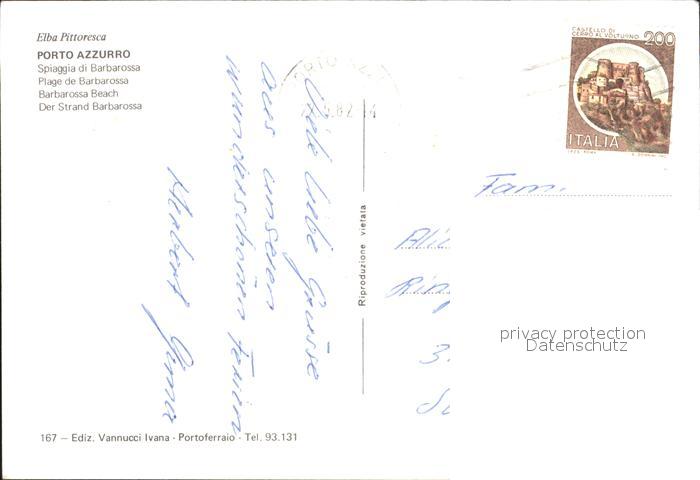 Elba Pittoresca
PORTO AZZURRO
Spiaggia di Barbarossa
Plage de Barbarossa
Barbarossa Beach
Der Strand Barbarossa
CASTELLO DI
CERRO AL VOLTURNO
200
ITALIA
Viele liebe Grüsse
aus unseren
wunderschönen Ferien
Herbert
Riproduzione vietata
Fam.
privacy protection
Datenschutz
167 — Ediz. Vannucci Ivana - Portoferraio - Tel. 93.131